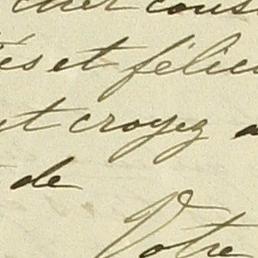 cher cous
és et félici
t croyez a
de
Votre